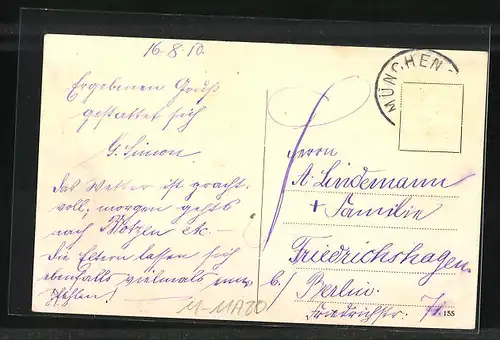 16.8.10.
Ergebenen Gruß
gestattet sich
G. Simon.
Das Wetter ist pracht-
voll, morgen gehts
nach Botzen etc. –
Die Eltern lassen sich
ebenfalls vielmals
MÜNCHEN
Herrn
A. Lindemann
+ Familie
Friedrichshagen
b/ Berlin.
Friedrichstr. 71
155
M-MA80